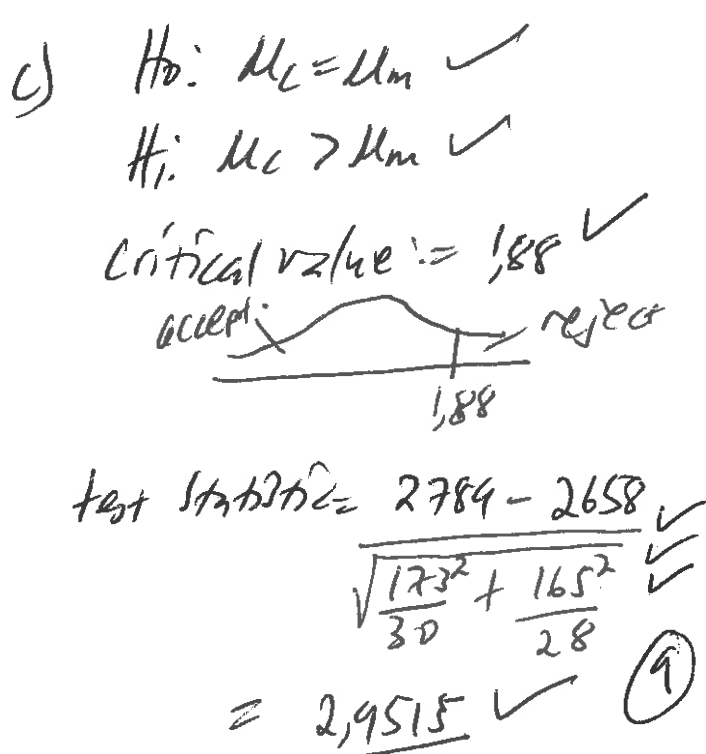 c) H₀: μc = μm ✓
H₁: μc > μm ✓
critical value := 1,88 ✓
accept. reject
1,88
test statistic = 2784 - 2658 ✓
√ 173² / 30 + 165² / 28 ✓ ✓
= 2,9515 ✓ 9